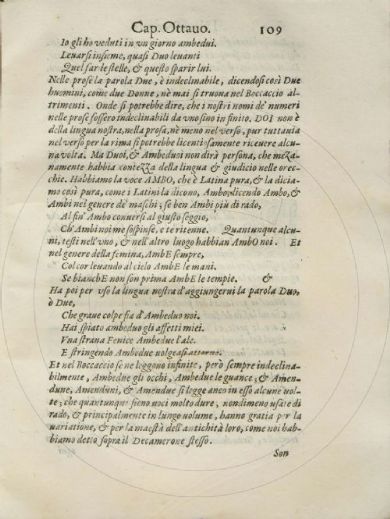 Cap. Ottauo. 109
Io gli ho veduti in vn giorno ambedui.
Leuarsi insieme, quasi Duo leuanti
Quel far le stelle, & questo sparir lui.
Nelle prose la parola Due, è indeclinabile, dicendosi così Due
huomini, come due Donne, nè mai si truoua nel Boccaccio al-
trimenti. Onde si potrebbe dire, che i nostri nomi de' numeri
nelle prose fossero indeclinabili da vno sino in infinito. DOI non è
della lingua nostra, nella prosa, nè meno nel verso, pur tuttauia
nel verso per la rima si potrebbe licentiosamente riceuere alcu-
na volta. Ma Duoi, & Ambeduoi non dirà persona, che meza-
namente habbia contezza della lingua & giudicio nelle orec-
chie. Habbiamo la voce AMBO, che è Latina pura, & la dicia-
mo così pura, come i Latini la dicono, Ambo, dicendo Ambo, &
Ambi nel genere de' maschi, se ben Ambi più di rado,
Al fin' Ambo conuersi al giusto seggio,
Ch'Ambi noi me sospinse, e te ritenne. Quantunque alcu-
ni, testi nell'vno, & nell'altro luogo habbian AmbO noi. Et
nel genere della femina, AmbE sempre,
Col cor leuando al cielo AmbE le mani.
Se bianchE non son prima AmbE le tempie. &
Ha poi per vso la lingua nostra d'aggiungerui la parola Duo,
è Due,
Che graue colpe fia d'Ambeduo noi.
Hai spiato ambeduo gli affetti miei.
Vna strana Fenice Ambedue l'ale.
E stringendo Ambedue volgeasi attorno.
Et nel Boccaccio se ne leggono infinite, però sempre indeclina-
bilmente, Ambedue gli occhi, Ambedue le guance, & Amen-
dune, Amendini, & Amendue si legge anco in esso alcune vol-
te; che quantunque sieno voci molto dure, nondimeno vsate di
rado, & principalmente in lungo volume, hanno gratia per la
uariatione, & per la maestà dell'antichità loro, come noi hab-
biamo detto sopra il Decamerone stesso.
Son